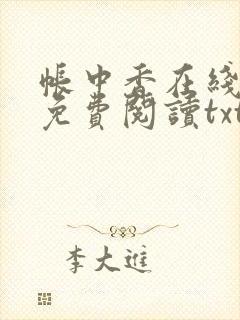 帳中香在綫
免費閱讀txt
李大進